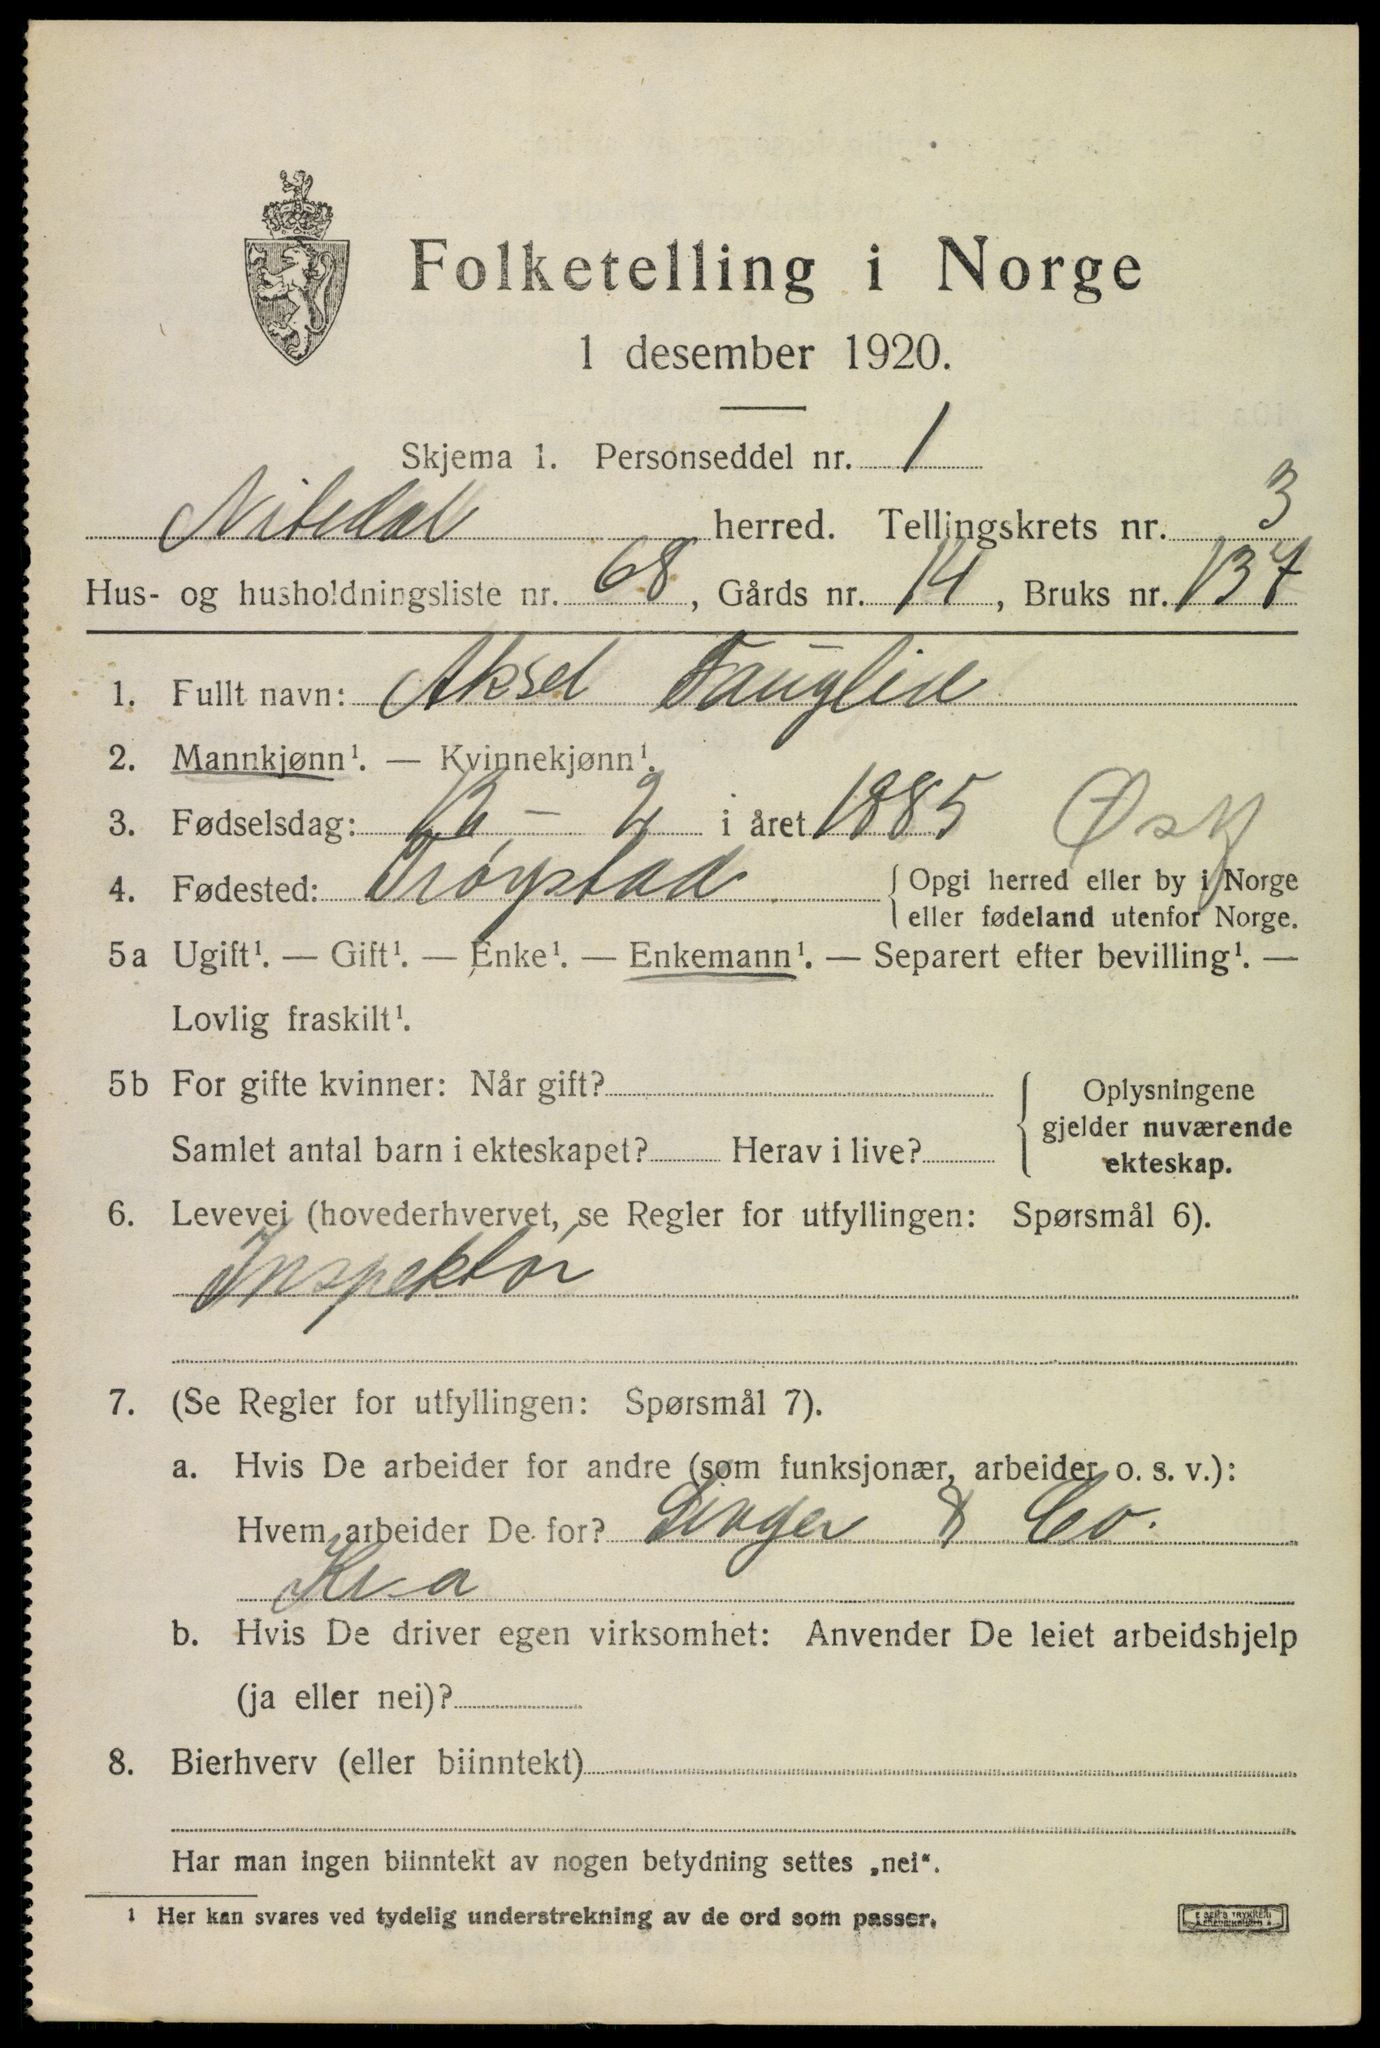 Folketelling i Norge
1 desember 1920.
Skjema 1. Personseddel nr. 1
Nitedal herred. Tellingskrets nr. 3
Hus- og husholdningsliste nr. 68, Gårds nr. 14, Bruks nr. 137
1. Fullt navn: Aksel Fauglid
2. Mannkjønn¹. — Kvinnekjønn¹.
3. Fødselsdag: - 2 i året 1885 Øsf
4. Fødested: Trøgstad { Opgi herred eller by i Norge
eller fødeland utenfor Norge.
5a Ugift¹. — Gift¹. — Enke¹. — Enkemann¹. — Separert efter bevilling¹. —
Lovlig fraskilt¹.
5b For gifte kvinner: Når gift? { Oplysningene
gjelder nuværende
Samlet antal barn i ekteskapet? Herav i live? ekteskap.
6. Levevei (hovederhvervet, se Regler for utfyllingen: Spørsmål 6).
Inspektør
7. (Se Regler for utfyllingen: Spørsmål 7).
a. Hvis De arbeider for andre (som funksjonær, arbeider o. s. v.):
Hvem arbeider De for? Singer & Co.
Kr.a
b. Hvis De driver egen virksomhet: Anvender De leiet arbeidshjelp
(ja eller nei)?
8. Bierhverv (eller biinntekt)
Har man ingen biinntekt av nogen betydning settes „nei“.
¹ Her kan svares ved tydelig understrekning av de ord som passer.